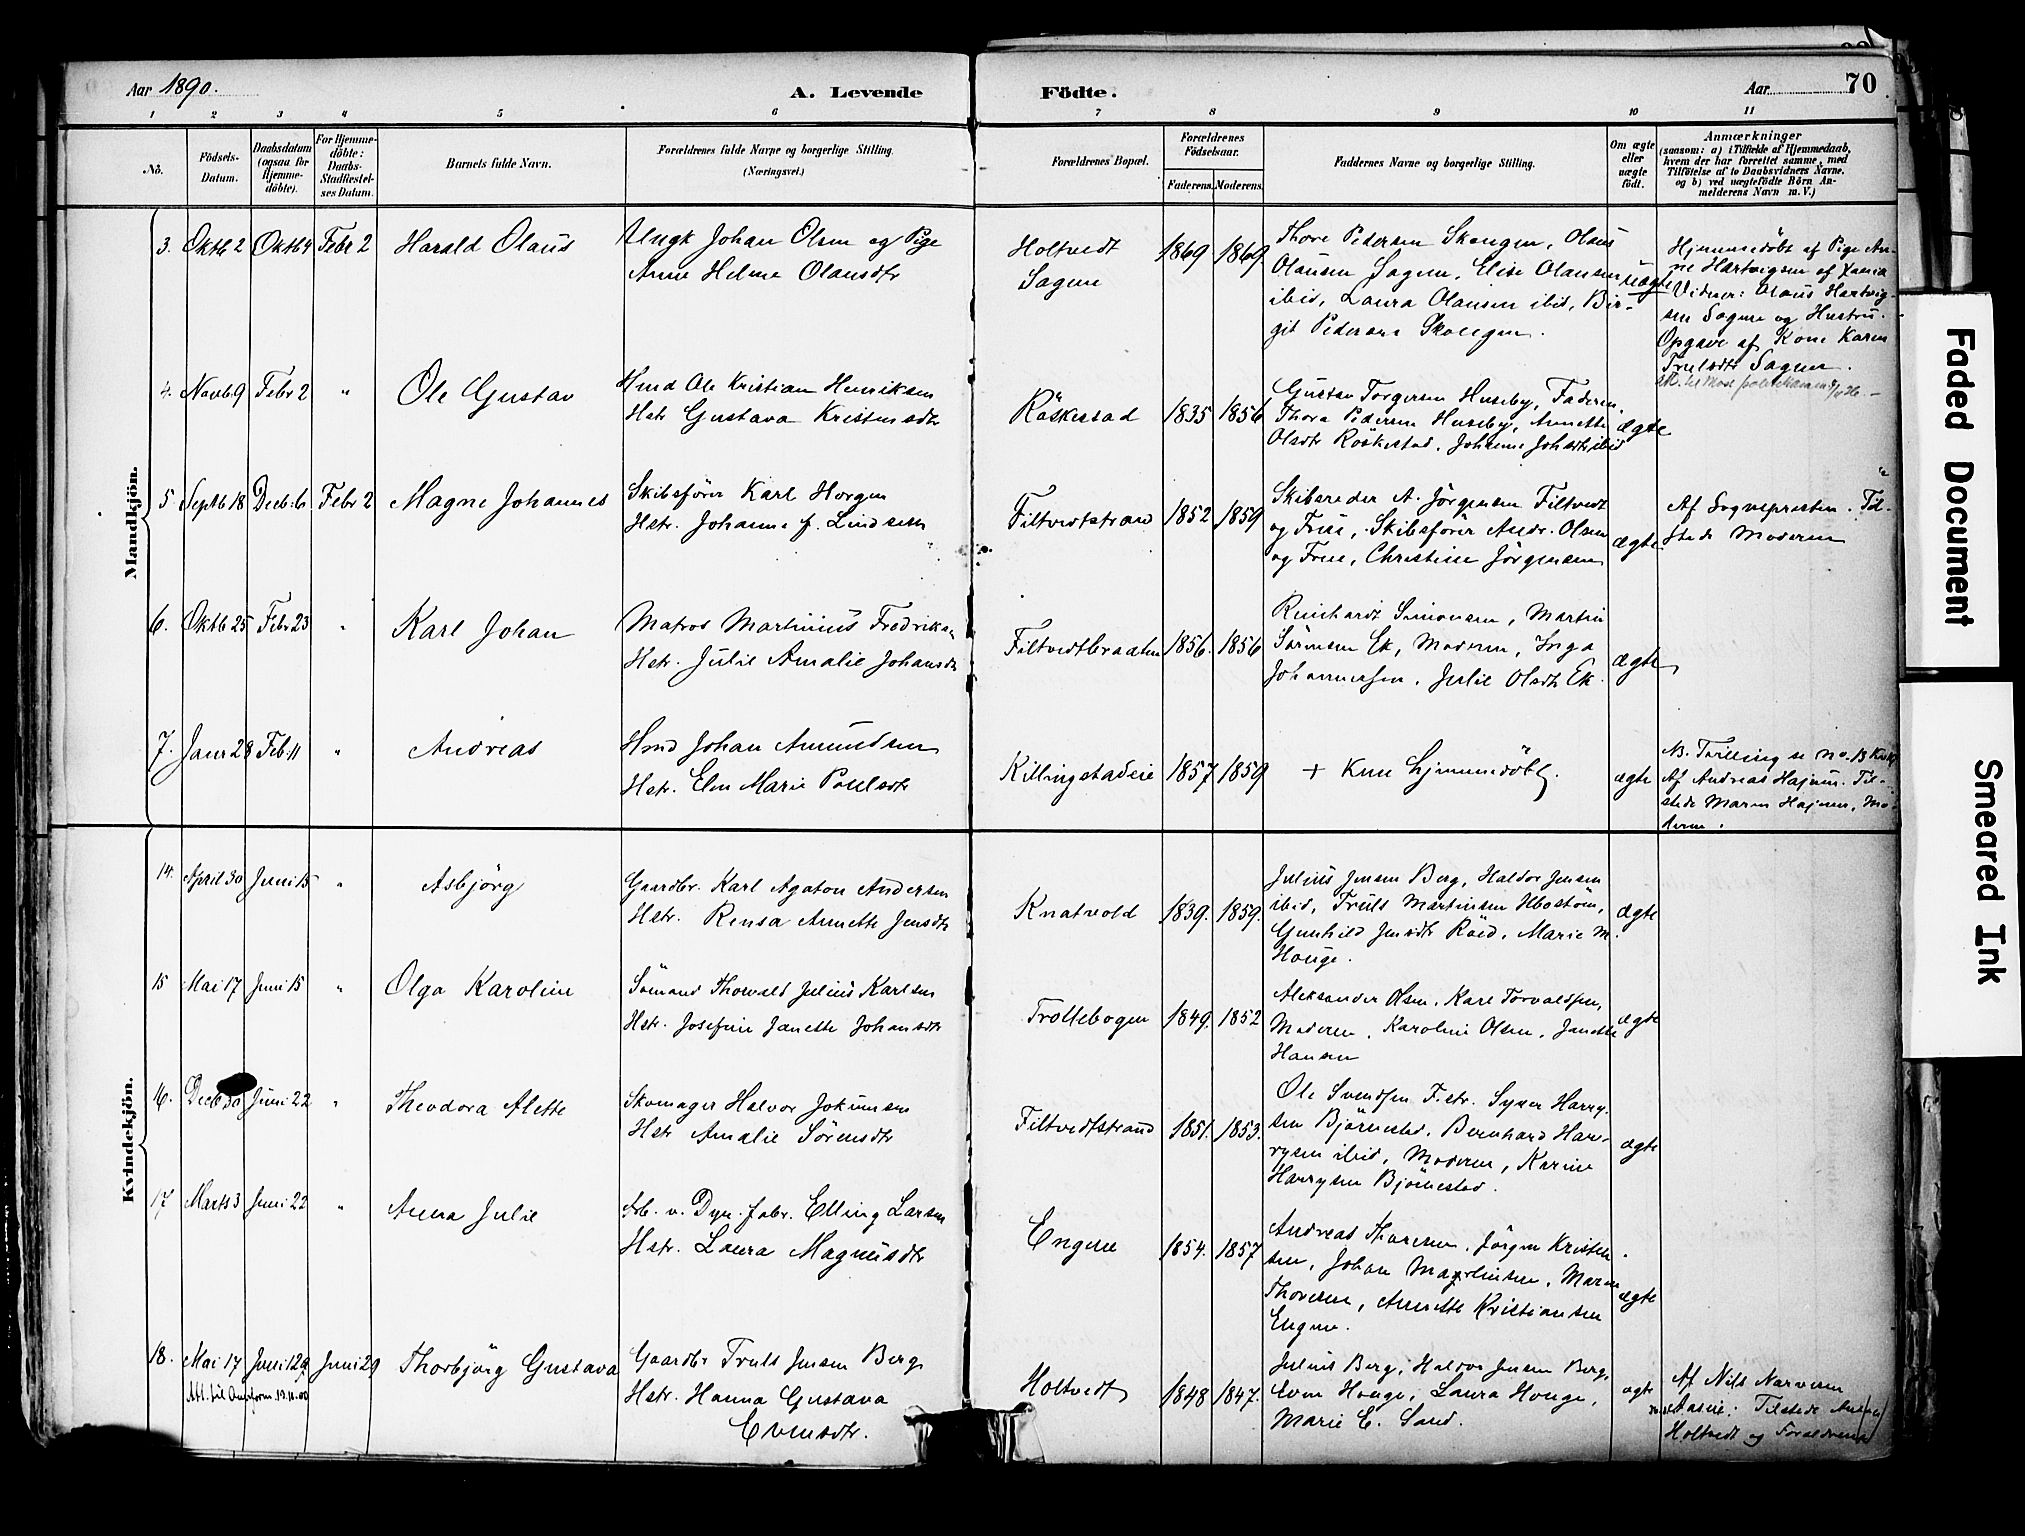 Aar 1890.
A. Levende Födte.
Aar 70
1 2 3 4 5 6 7 8 9 10 11
No.
Födsels-Datum.
Daabsdatum (ogsaa for Hjemme-döbte).
For Hjemme-döbte: Daabs-Stadfæstelses Datum.
Barnets fulde Navn.
Forældrenes fulde Navne og borgerlige Stilling.
(Næringsvei.)
Forældrenes Bopæl.
Forældrenes Födselsaar.
Faderens. Moderens.
Faddernes Navne og borgerlige Stilling.
Om ægte eller uægte födt.
Anmærkninger
(saasom: a) i Tilfælde af Hjemmedaab,
hvem der har forrettet samme, med
Tilföielse af to Daabsvidners Navne.
og b) ved uægtefödte Börn An-
melderens Navn m. V.)
Mandkjön.
3. Oktb 2 Oktb 4 Febr 2 Harald Olaus
Ungk Johan Olsen og Pige
Anne Helene Olausdtr
Holtvedt
Sagene
1869 1869.
Thore Pedersen Skougen, Olaus
Olausen Sagen, Elise Olausen
ibid, Laura Olausen ibid, Bir-
git Pedersen Skougen.
uægte
Hjemmedöbt af Pige An-
ne Hartvigsen af
Vidner: Olaus Hartvig-
sen Sagene og Hustru.
Opgave af Kone Karen
Trulsdtr Sagen.
4. Novb 9 Febr 2 " Ole Gustav
Hmd Ole Kristian Henriksen
Hstr Gustava Kristensdtr
Röskestad
1835 1856
Gustav Torgersen Huseby, Faderen,
Thora Pedersen Huseby, Annette
Olsdtr Röskestad, Johanne Johsdtr ibid
ægte
5 Septb 18 Decb. 6 Febr 2 Magne Johannes
Skibsförer Karl Horgen
Hstr. Johanne f. Lindsen
Filtvedtstrand
1852 1859
Skibsreder A. Jörgensen Filtvedt
og Frue, Skibsförer Andr. Olsen
og Frue, Christine Jörgensen
ægte
Af Sognepresten. Til-
stede Moderen
6. Oktb 25 Febr 23 " Karl Johan
Matros Martinius Fredriksen
Hstr. Julie Amalie Johansdtr
Filtvedtbraaten
1856. 1856
Reinhardt Simonsen, Martin
Sörensen Ek, Moderen, Inga
Johannessen, Julie Olsdtr Ek.
ægte
7. Janr 28 Feb. 11 " Andreas
Hmd Johan Amundsen
Hstr. Elen Marie Poulsdtr
Killingstadeie
1857 1859
+ Kun hjemmedöbt.
ægte
NB. Tvilling se No. 13 Kvk.
Af Andreas Hajum. Til-
stede Maren Hajum, Mo-
deren.
Kvindekjön.
14. April 30 Juni 15 " Asbjörg
Gaardbr. Karl Agaton Andersen
Hstr. Rensa Annette Jensdtr
Knatvold
1839. 1859.
Julius Jensen Berg, Haldor Jensen
ibid, Truls Martinsen
Gunhild Jensdtr Röed, Marie M.
Houge.
ægte
15 Mai 17 Juni 15 " Olga Karoline
Sömand Thorvald Julius Karlsen
Hstr. Josefine Janette Johansdtr
Trollebogen
1849. 1852
Aleksander Olsen, Karl Torvaldsen,
Moderen, Karoline Olsen, Janette
Hansen
ægte
16. Decb 30 Juni 22 " Theodora Alette
Skomager Halvor Jokumsen
Hstr Amalie Sörensdtr
Filtvedtstrand
1851. 1853.
Ole Svendsen F.str. Syver Harry-
sen Björnestad, Bernhard Har-
rysen ibid, Moderen, Karine
Harrysen Björnestad.
ægte
17 Marts 3 Juni 22 " Anna Julie
Arb. v. Dyn. fabr. Elling Larsen
Hstr. Laura Magnusdtr
Engene
1854. 1857
Andreas Thoresen, Jörgen Kristen-
sen, Johan Martinsen, Maren
Thoresen, Annette Kristiansen
Engene.
ægte
18. Mai 17 Juni 29 Juni 29 Thorbjörg Gustava
Att. til 13.10.00
Gaardbr Truls Jensen Berg
Hstr. Hanna Gustava
Evensdtr.
Holtvedt
1848 1847.
Julius Berg, Haldor Jensen Berg,
Even Houge, Laura Houge,
Marie E. Sand.
ægte
Af Nils Narvesen
Tilstede
Holtvedt og Forældrene
Faded Document
Smeared Ink